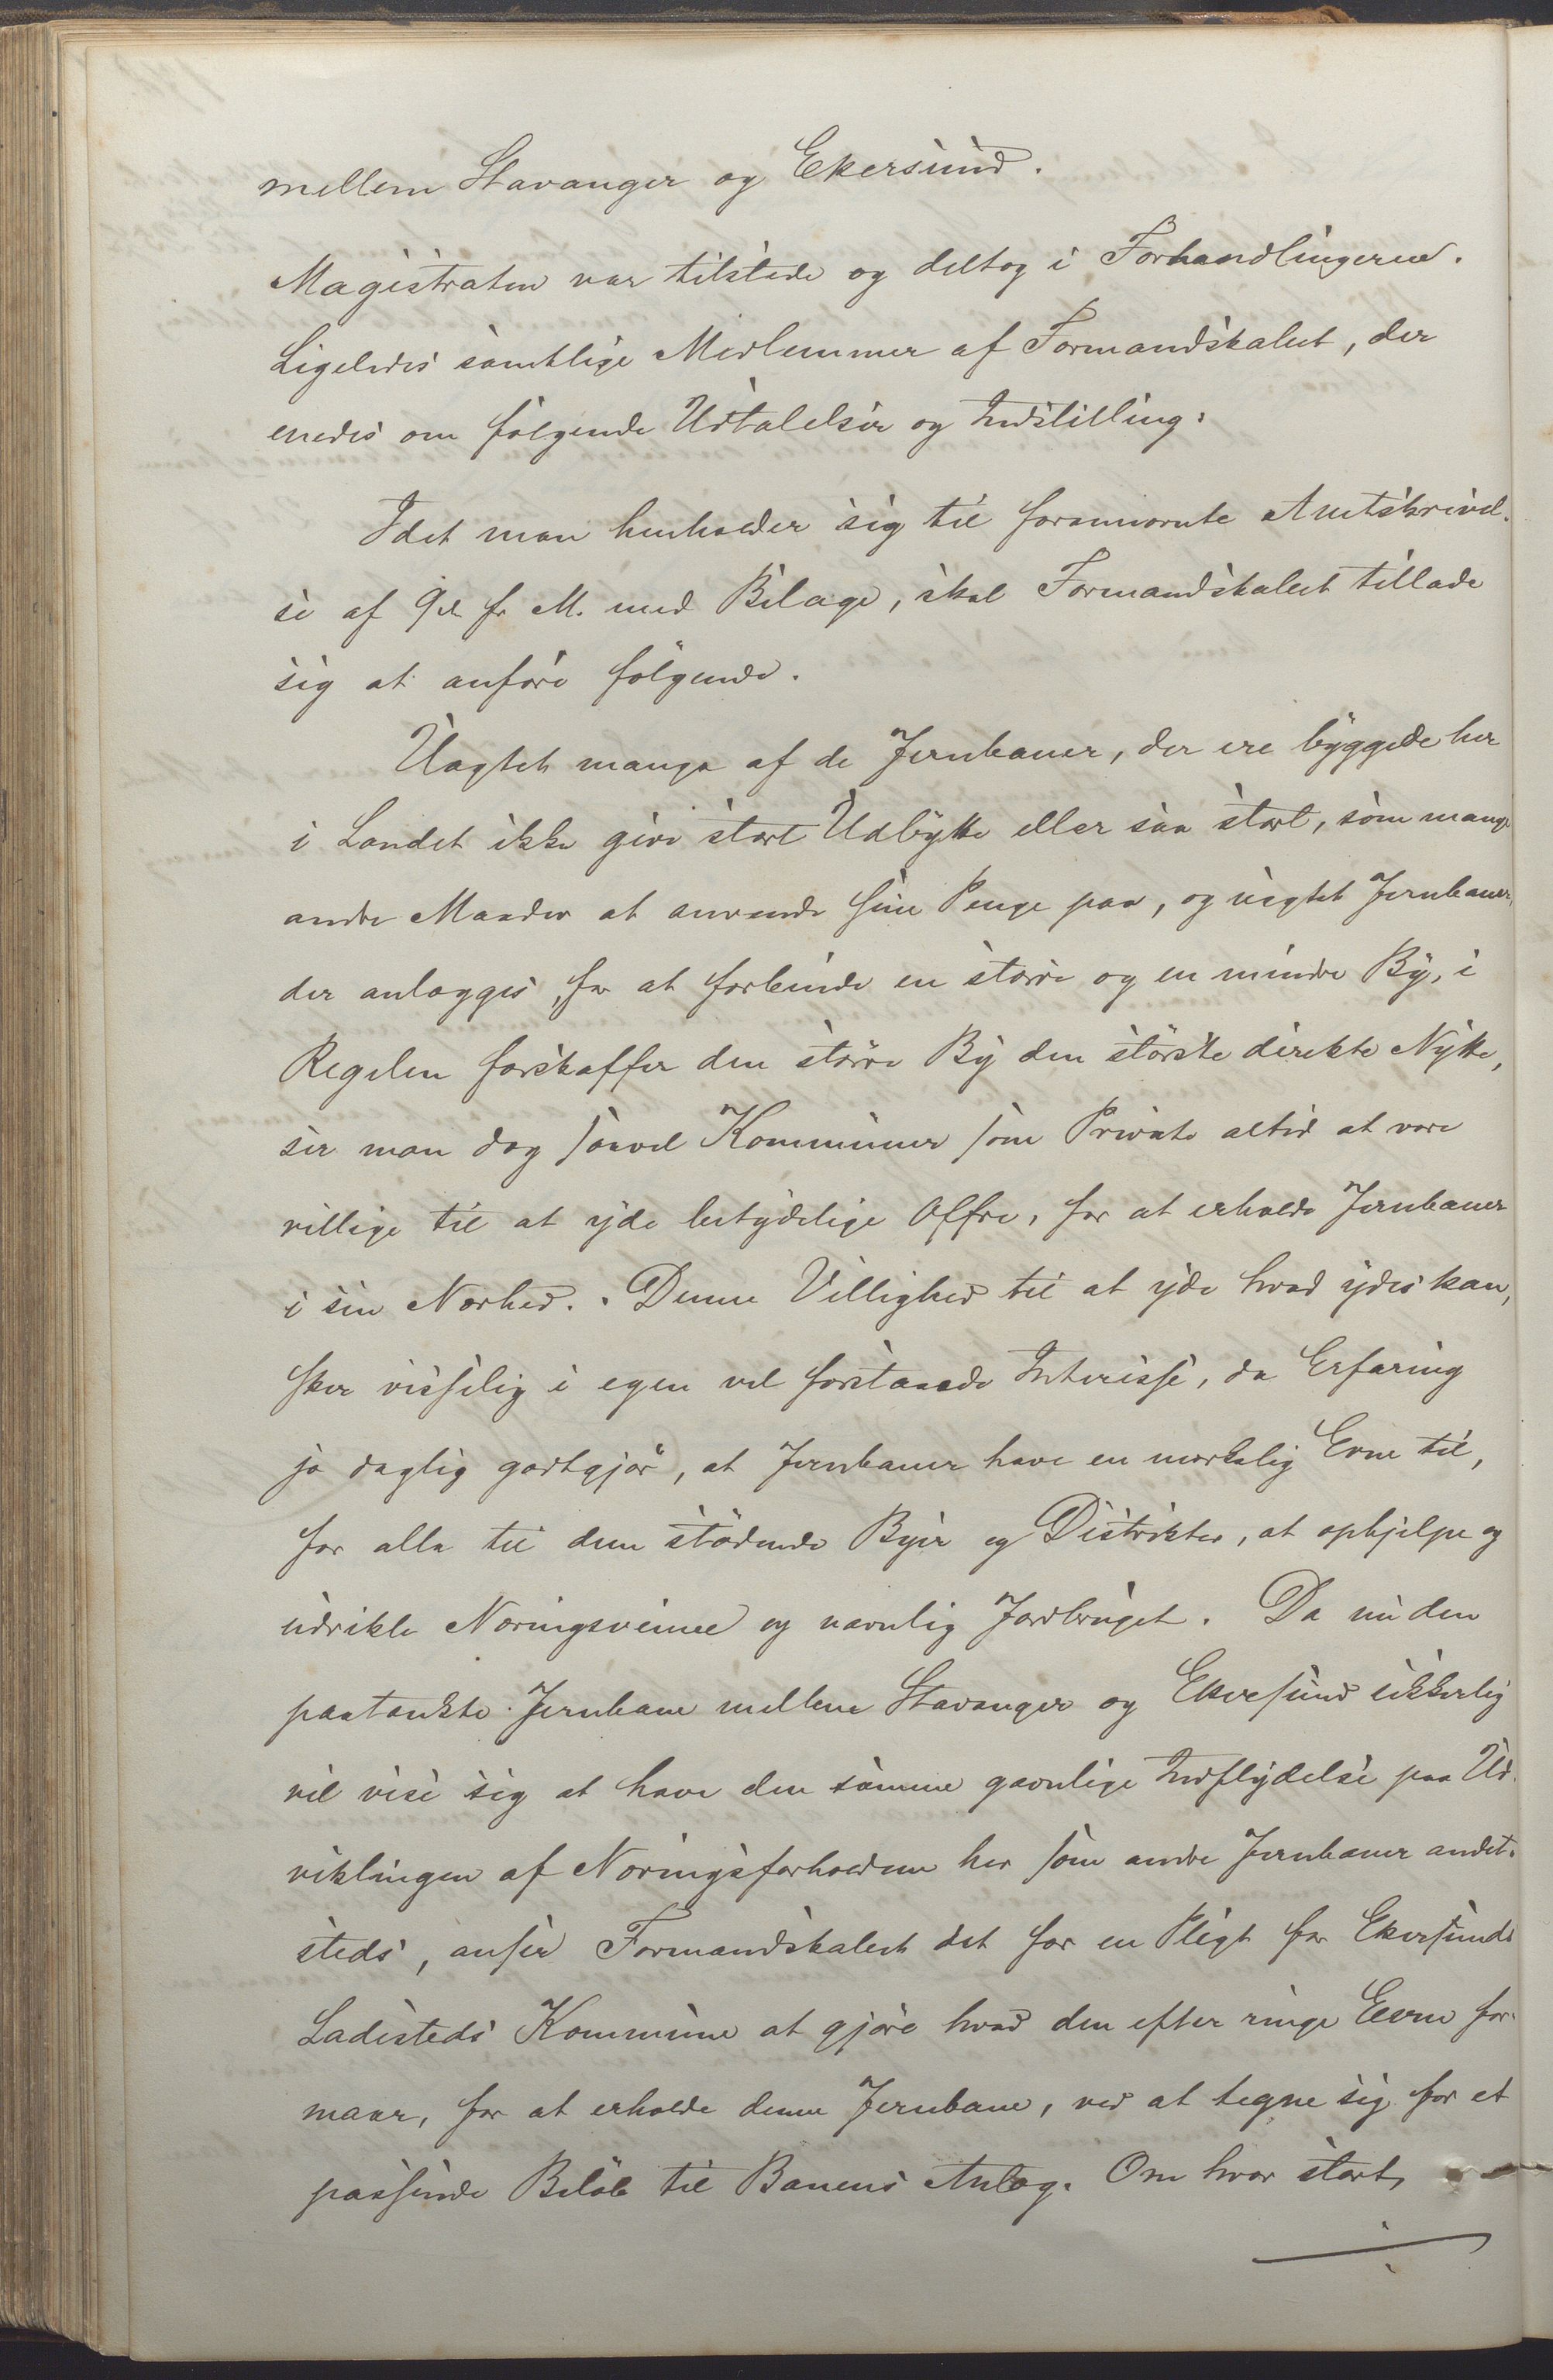 mellem Stavanger og Ekersund.
Magistraten var tilstede og deltog i Forhandlingerne.
Ligeledes samtlige Medlemmer af Formandskabet, der
enedes om følgende Udtalelser og Indstilling:
Idet man henholder sig til forannævnte Amtskrivel-
se af 9de f. M. med Bilage, skal Formandskabet tillade
sig at anføre følgende.
Uagtet mange af de Jernbaner, der ere byggede her
i Landet ikke give stort Udbytte eller saa stort, som mange
andre Maader at anvende sine Penge paa, og uagtet Jernbaner,
der anlægges, for at forbinde en større og en mindre By, i
Regelen forskaffer den større By den største direkte Nytte,
ser man dog saavel Kommuner som Private altid at være
villige til at yde betydelige Offre, for at erholde Jernbaner
i sin Nærhed. Denne Villighed til at yde hvad ydes kan,
sker visselig i egen vel forstaaede Interesse, da Erfaring
jo daglig godtgjør, at Jernbaner have en mærkelig Evne til,
for alle til dem stødende Byer og Distrikter, at ophjelpe og
udvikle Næringsveiene og navnlig Jordbruget. Da nu den
paatænkte Jernbane mellem Stavanger og Ekersund sikkerlig
vil vise sig at have den samme gavnlige Indflydelse paa Ud-
viklingen af Næringsforholdene her som andre Jernbaner andet-
steds, anser Formandskabet det for en Pligt for Ekersunds
Ladesteds Kommune at gjøre hvad den efter ringe Evne for-
maar, for at erholde denne Jernbane, ved at tegne sig for et
passende Beløb til Banens Anlæg. Om hvor stort,